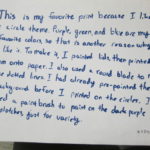 This is my favorite print because I like
circle theme. Purple, green, and blue are my
favorite colors, so that is another reason why
like it. To make it, I painted lids, then printed
em onto paper. I also used a round blade to
e dotted lines. I had already pre-painted the
background before I printed on the circles. I
ed a paintbrush to paint on the dark purple
splotches just for variety.